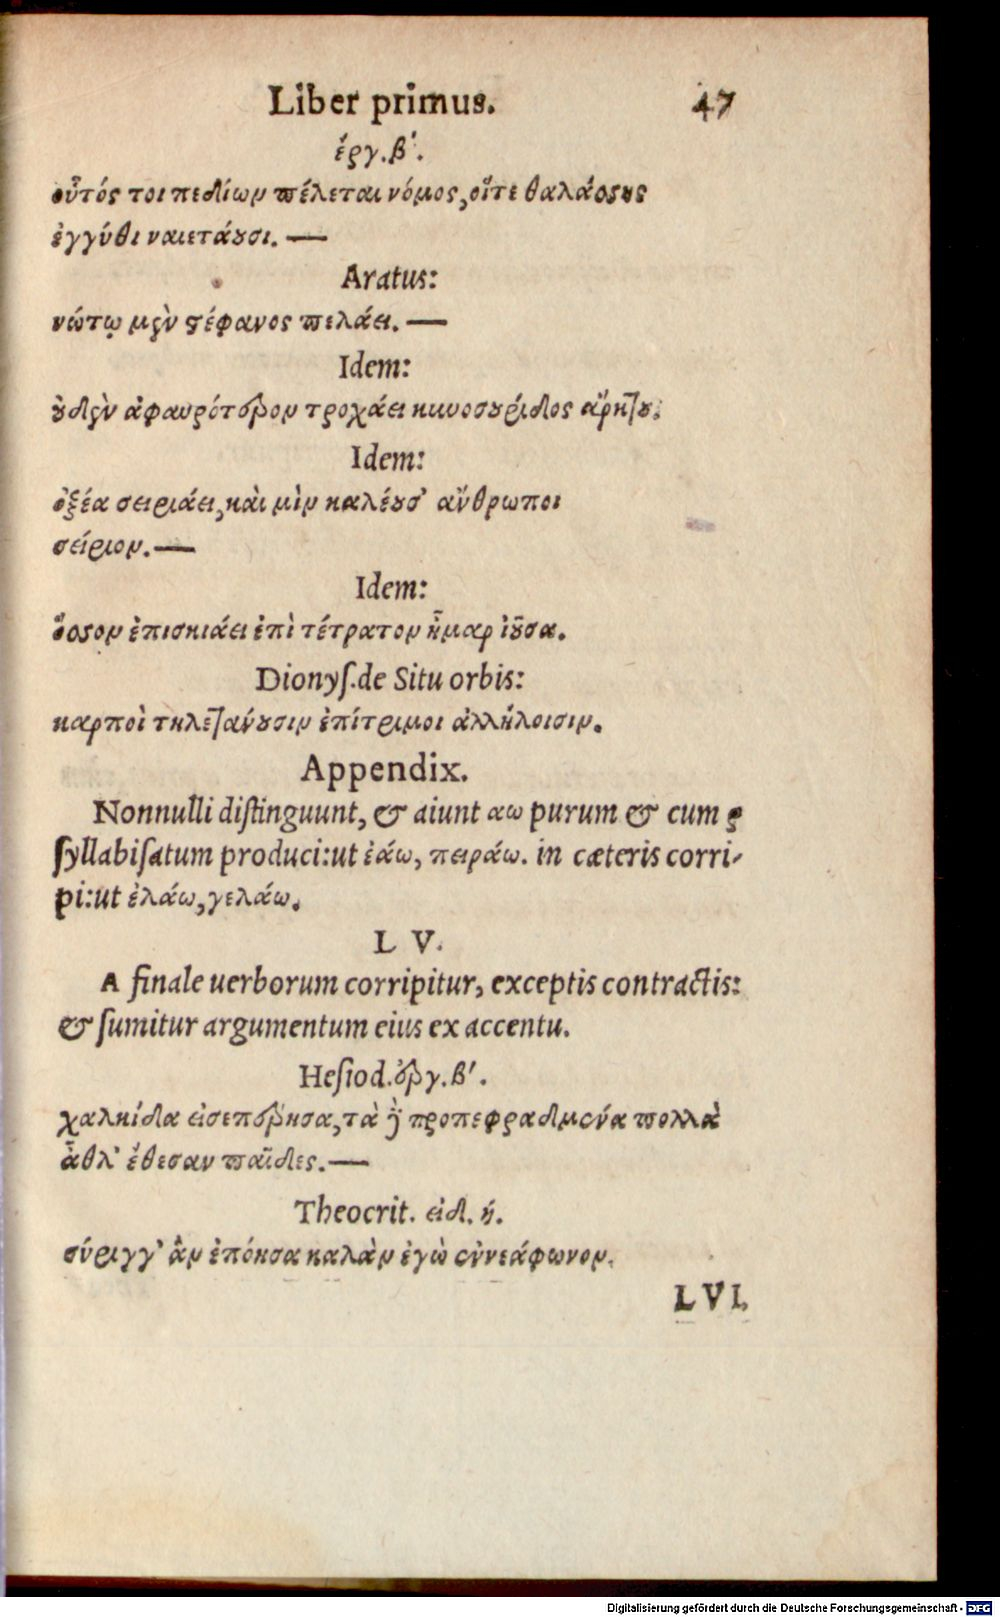 Liber primus. 47
ἔργ. β΄.
οὗτός τοι πεδίων πέλεται νόμος, οἵτε θαλάσσης
ἐγγύθι ναιετάουσι. —
Aratus:
νώτῳ μὲν στέφανος πελάει. —
Idem:
οὐδὲν ἀφαυρότερον τροχάει κυνοσουρίδος ἄρκτου.
Idem:
ὀξέα σειριάει, καὶ μὶν καλέουσ' ἄνθρωποι
σείριον. —
Idem:
ὅσσον ἐπισκιάει ἐπὶ τέτρατον ἦμαρ ἰοῦσα.
Dionyſ. de Situ orbis:
καρποὶ τηλεταύουσιν ἐπίτριμοι ἀλλήλοισιν.
Appendix.
Nonnulli diſtinguunt, & aiunt αω purum & cum ρ
ſyllabiſatum produci: ut ἐάω, πειράω. in cæteris corri-
pi: ut ἐλάω, γελάω.
L V.
A finale uerborum corripitur, exceptis contractis:
& ſumitur argumentum eius ex accentu.
Heſiod. ἔργ. β΄.
χαλκίδα εἰσεπέρησα, τὰ δὲ προπεφραδμένα πολλὰ
ἆθλ' ἔθεσαν παῖδες. —
Theocrit. εἰδ. ή.
σύριγγ' ἃν ἐπόησα καλὰν ἐγὼ ἐννεάφωνον.
LVI.
Digitalisierung gefördert durch die Deutsche Forschungsgemeinschaft - DFG